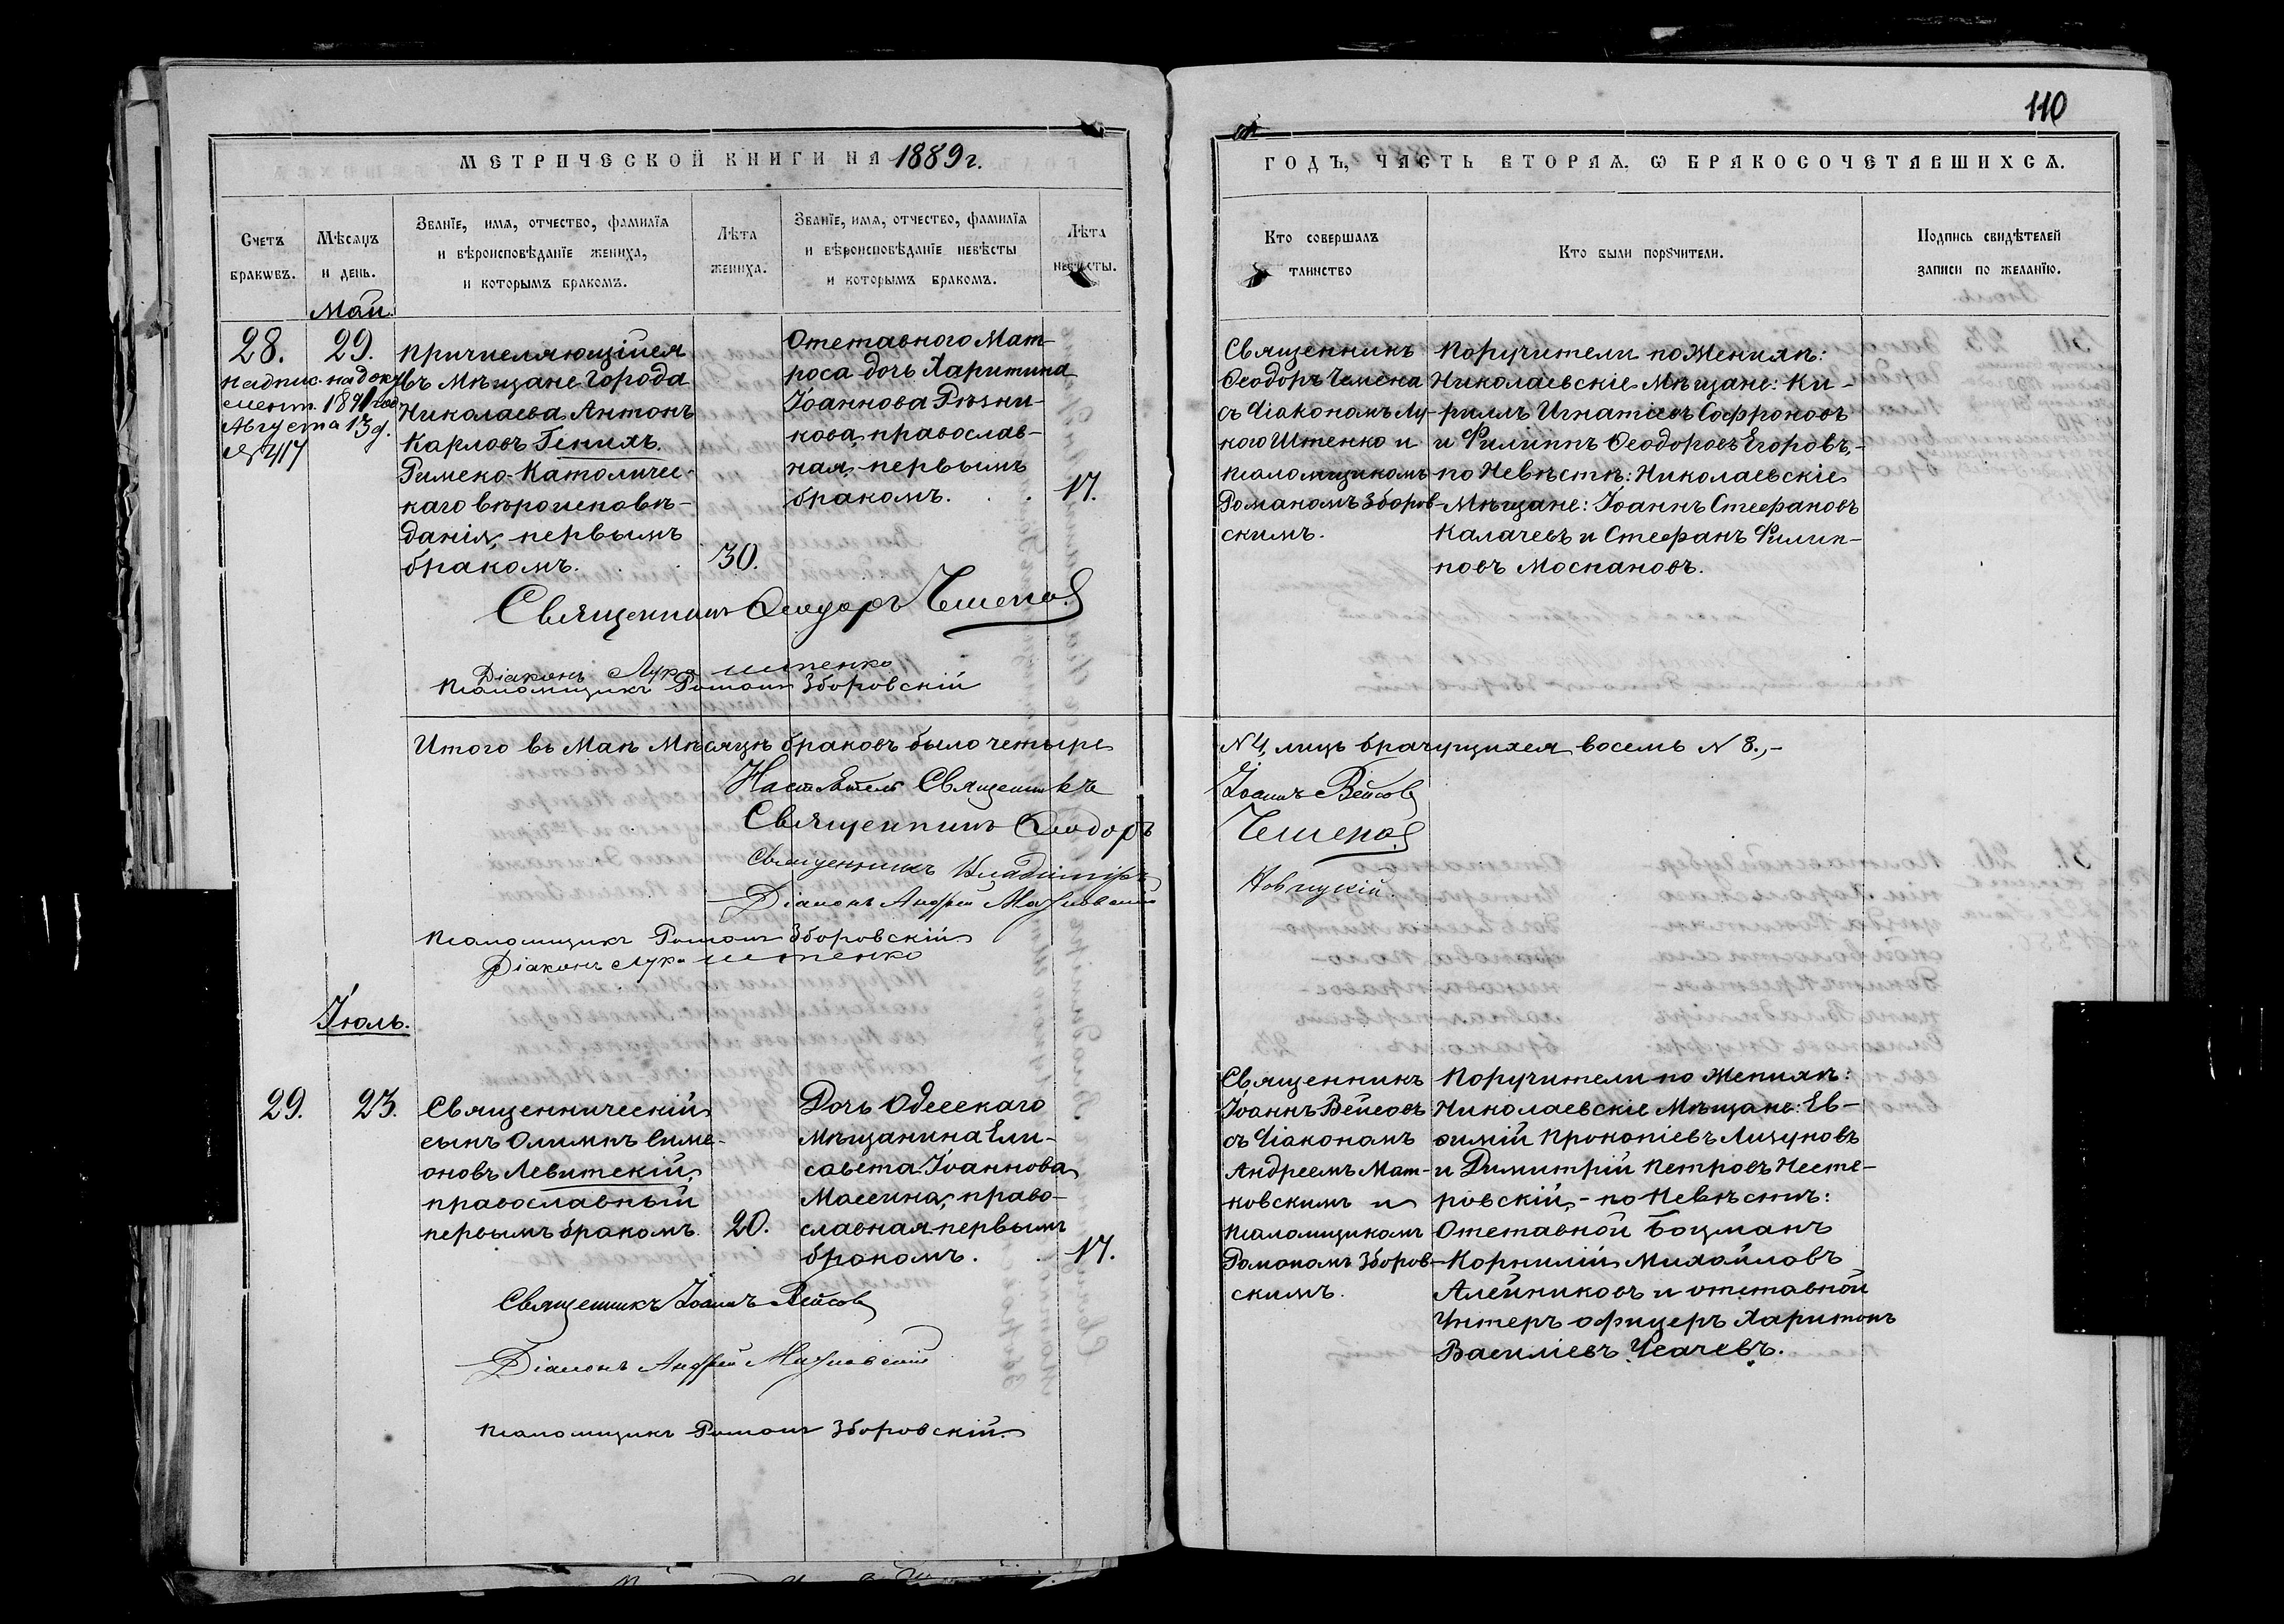 110
МЕТРИЧЕСКОЙ КНИГИ НА 1889 г.
ГОДЪ, ЧАСТЬ ВТОРАѦ, Ѡ БРАКОСОЧЕТАВШИХСѦ.
Счетъ браквъ.
Мѣсяцъ и день.
Званїе, имя, отчество, фамилїя
и вѣроисповѣданїе жениха,
и которымъ бракомъ.
Лѣта жениха.
Званїе, имя, отчество, фамилїя
и вѣроисповѣданїе невѣсты
и которымъ бракомъ.
Лѣта невѣсты.
Кто совершалъ таинство
Кто были порꙋчители.
Подпись свидѣтелей
записи по желанїю.
Май.
28.
29.
Надпис. на доку
мент. 1891 год
Августа 13 д.
№ 417
Причисляющійся
въ Мѣщане Города
Николаева Антонъ
Карловъ Генихъ.
Римско-Католичес-
каго вѣроисповѣ-
данія, первымъ
бракомъ.
30.
Отставного Мат-
роса дочь Харитина
Іоаннова Рѣзни-
кова, православ-
ная, первымъ
бракомъ.
17.
Священникъ
Ѳеодоръ Чемена
съ Діакономъ Лу-
кою Штенко и
Псаломщикомъ
Романомъ Зборов-
скимъ.
Поручители по Женихѣ:
Николаевскіе Мѣщане: Ки-
риллъ Игнатіевъ Софроновъ
и Филиппъ Ѳеодоровъ Егоровъ,-
по Невѣстѣ: Николаевскіе
Мѣщане: Іоаннъ Стефановъ
Калачевъ и Стефанъ Филип-
повъ Москановъ.
Священникъ Ѳеодоръ Чемена
Діаконъ Лука Штенко
Псаломщикъ Романъ Зборовскій
Итого въ Маѣ Мѣсяцѣ браковъ было четыре
№ 4, лицъ брачущихся восемь № 8.,-
Настоятель Священникъ
Іоаннъ Вейсовъ
Священникъ Ѳеодоръ
Чемена
Священникъ Владиміръ
Новицкій
Діаконъ Андрей Матковскій
Псаломщикъ Романъ Зборовскій
Діаконъ Лука Штенко
Іюль.
29.
23.
Священническій
сынъ Олимпъ Симе-
оновъ Левитскій,
православный
первымъ бракомъ.
20.
Дочь Одесскаго
Мѣщанина Ели-
савета Іоаннова
Массина, право-
славная первымъ
бракомъ.
17.
Священникъ
Іоаннъ Вейсовъ
съ Діакономъ
Андреемъ Мат-
ковскимъ и
Псаломщикомъ
Романомъ Зборов-
скимъ.
Поручители по Женихѣ:
Николаевскіе Мѣщане: Ев-
ѳимій Прокопіевъ Лизуновъ
и Димитрій Петровъ Несте-
ровскій,- по Невѣстѣ:
Отставной Боцманъ
Корнилій Михайловъ
Алейниковъ и отставной
Унтеръ офицеръ Харитонъ
Василіевъ
Священникъ Іоаннъ Вейсовъ
Діаконъ Андрей Матковскій
Псаломщикъ Романъ Зборовскій.